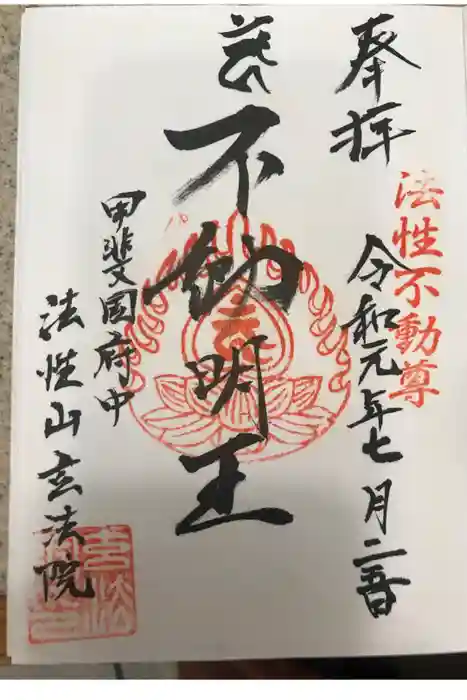 奉拝
法性不動尊
令和元年七月二五日
不動明王
甲斐国府中
法性山玄法院